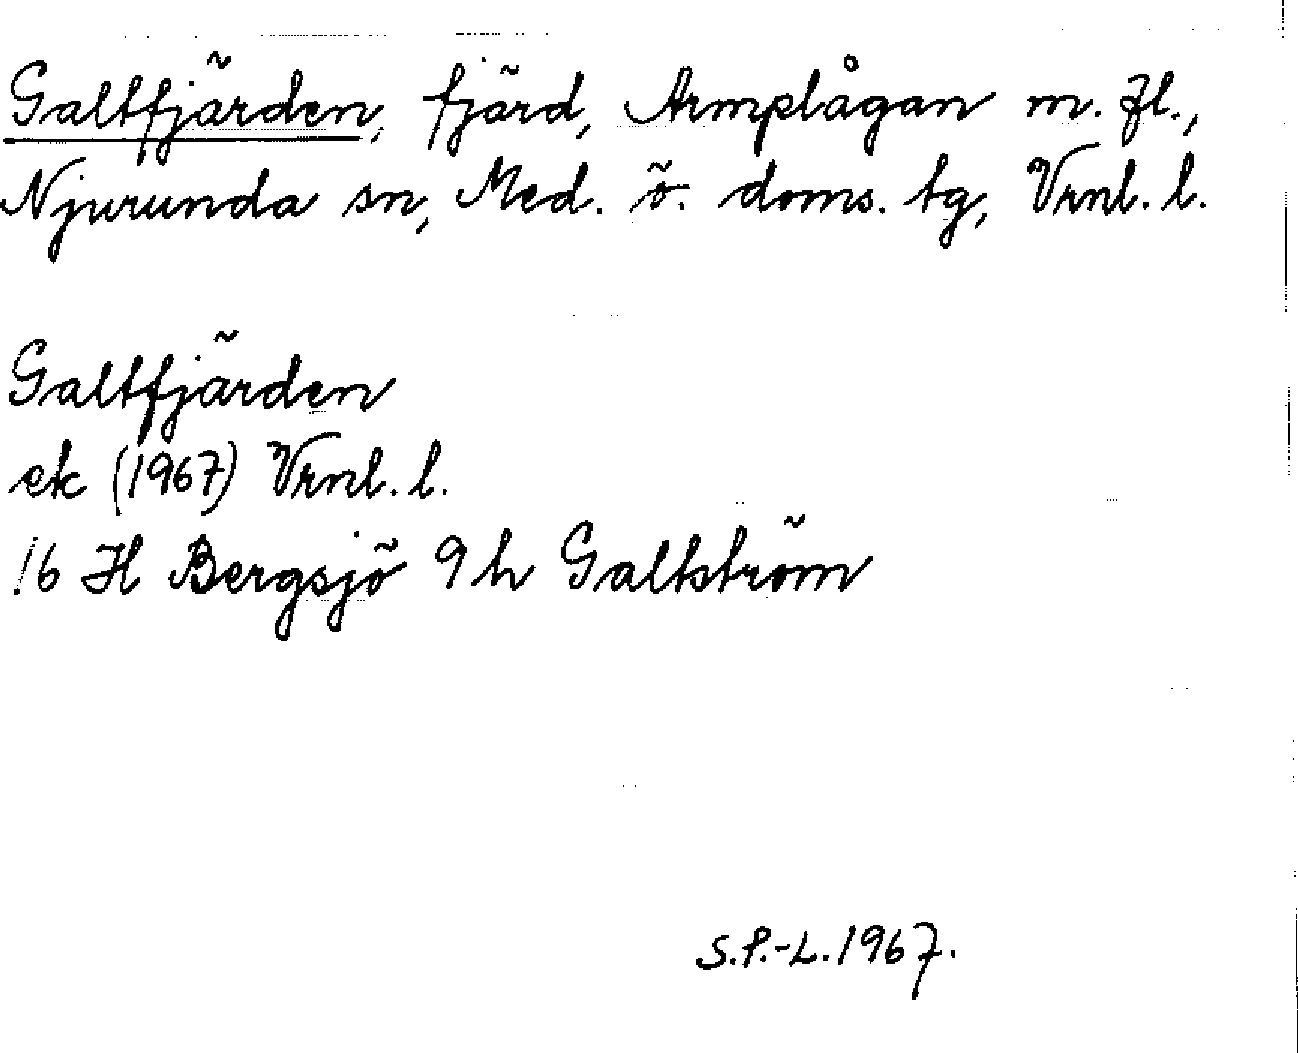 Galtfjärden, fjärd, Armplågan m. fl.,
Njurunda sn, Med. ö. doms. tg, Vrnl. l.
Galtfjärden
ek (1967) Vrnl. l.
16 H Bergsjö 9 h Galtström
S.P.-L. 1967.